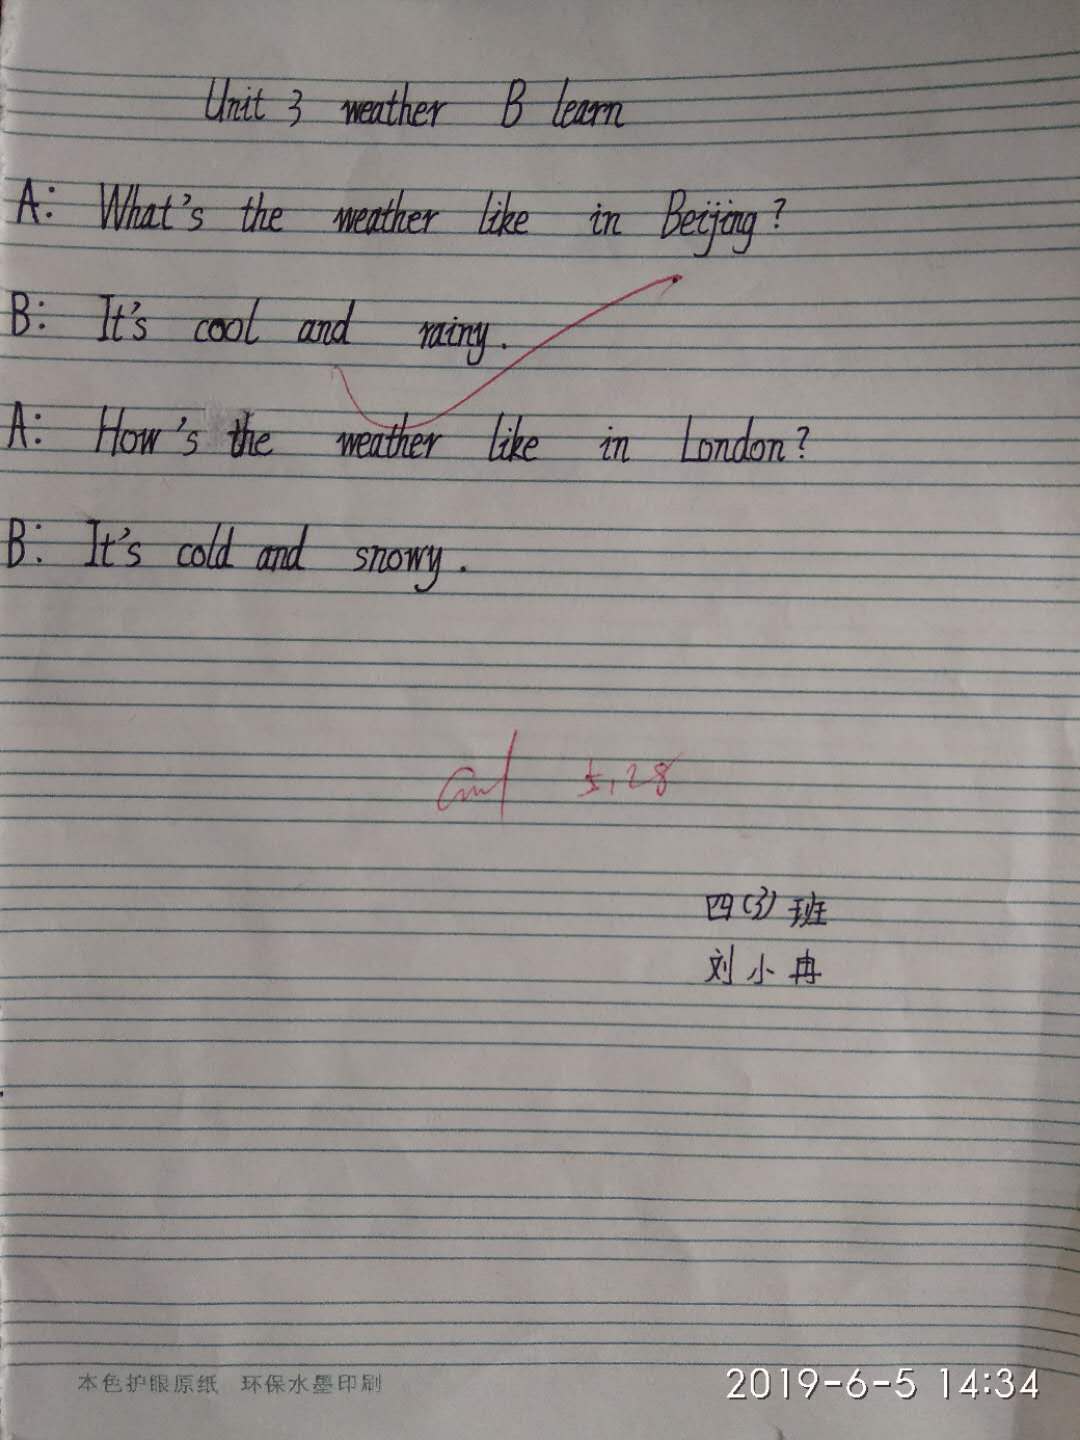 Unit 3 weather B learn
A: What's the weather like in Beijing?
B: It's cool and rainy.
A: How's the weather like in London?
B: It's cold and snowy.
5.28
四(3)班
刘小冉
本色护眼原纸 环保水墨印刷
2019-6-5 14:34